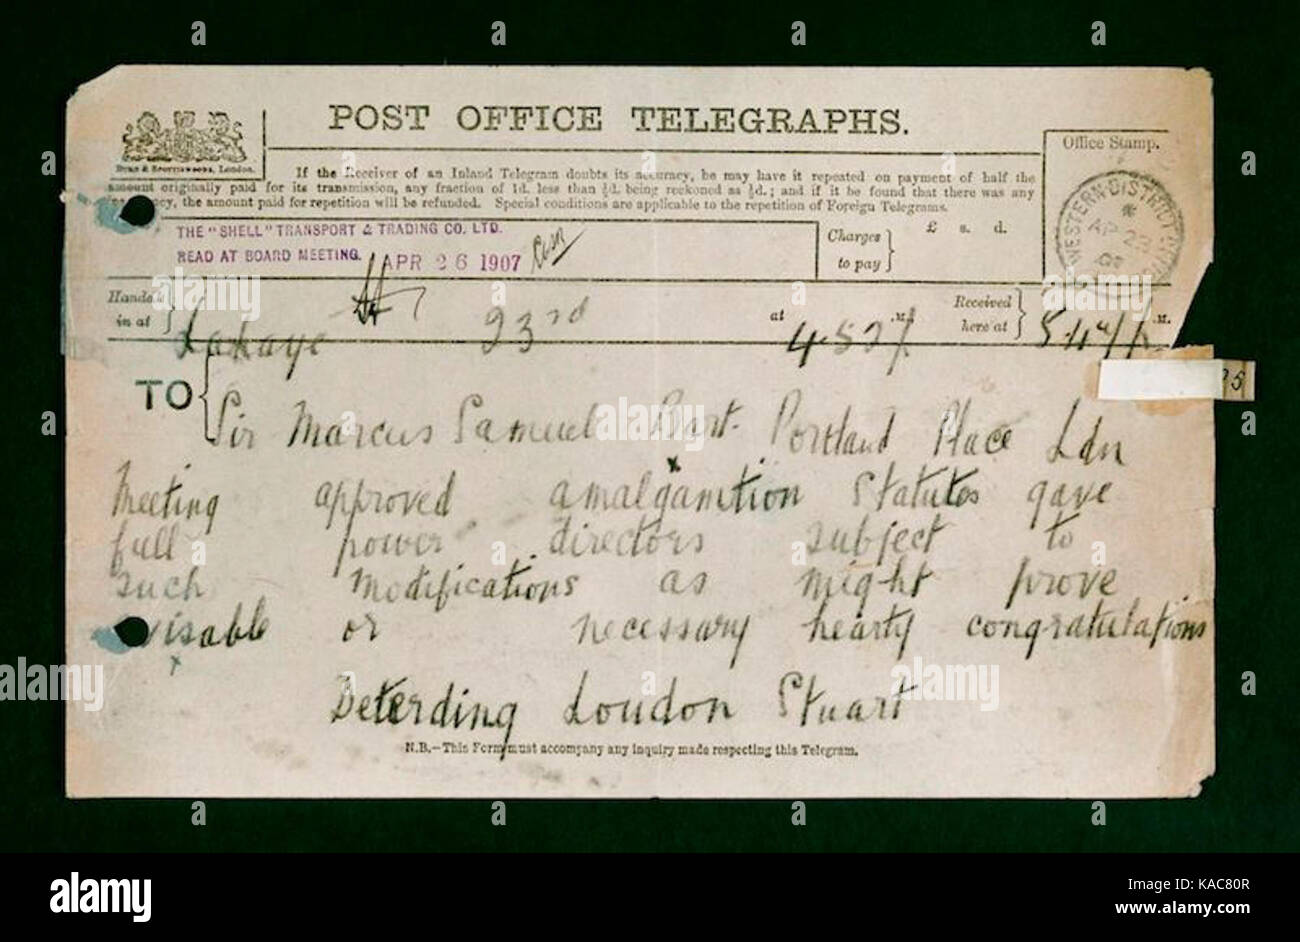 POST OFFICE TELEGRAPHS.
Office Stamp.
EYRE & SPOTTISWOODE, London.
If the Receiver of an Inland Telegram doubts its accuracy, he may have it repeated on payment of half the
amount originally paid for its transmission, any fraction of 1d. less than ½d. being reckoned as ½d.; and if it be found that there was any
cy, the amount paid for repetition will be refunded. Special conditions are applicable to the repetition of Foreign Telegrams.
WESTERN DISTRICT
AP 23
07
THE "SHELL" TRANSPORT & TRADING CO. LTD.
READ AT BOARD MEETING. APR 26 1907
Charges to pay
£ s. d.
Handed in at
Lahaye 23rd
at 4.52 P .M.
Received here at
.M.
TO
Sir Marcus Samuel Bart. Portland Place Ldn
Meeting approved amalgamtion Statutes gave
full power directors subject to
such modifications as might prove
visable or necessary hearty congratulations
Deterding Loudon Stuart
N.B.—This Form must accompany any inquiry made respecting this Telegram.
alamy
Image ID: KAC80R
www.alamy.com